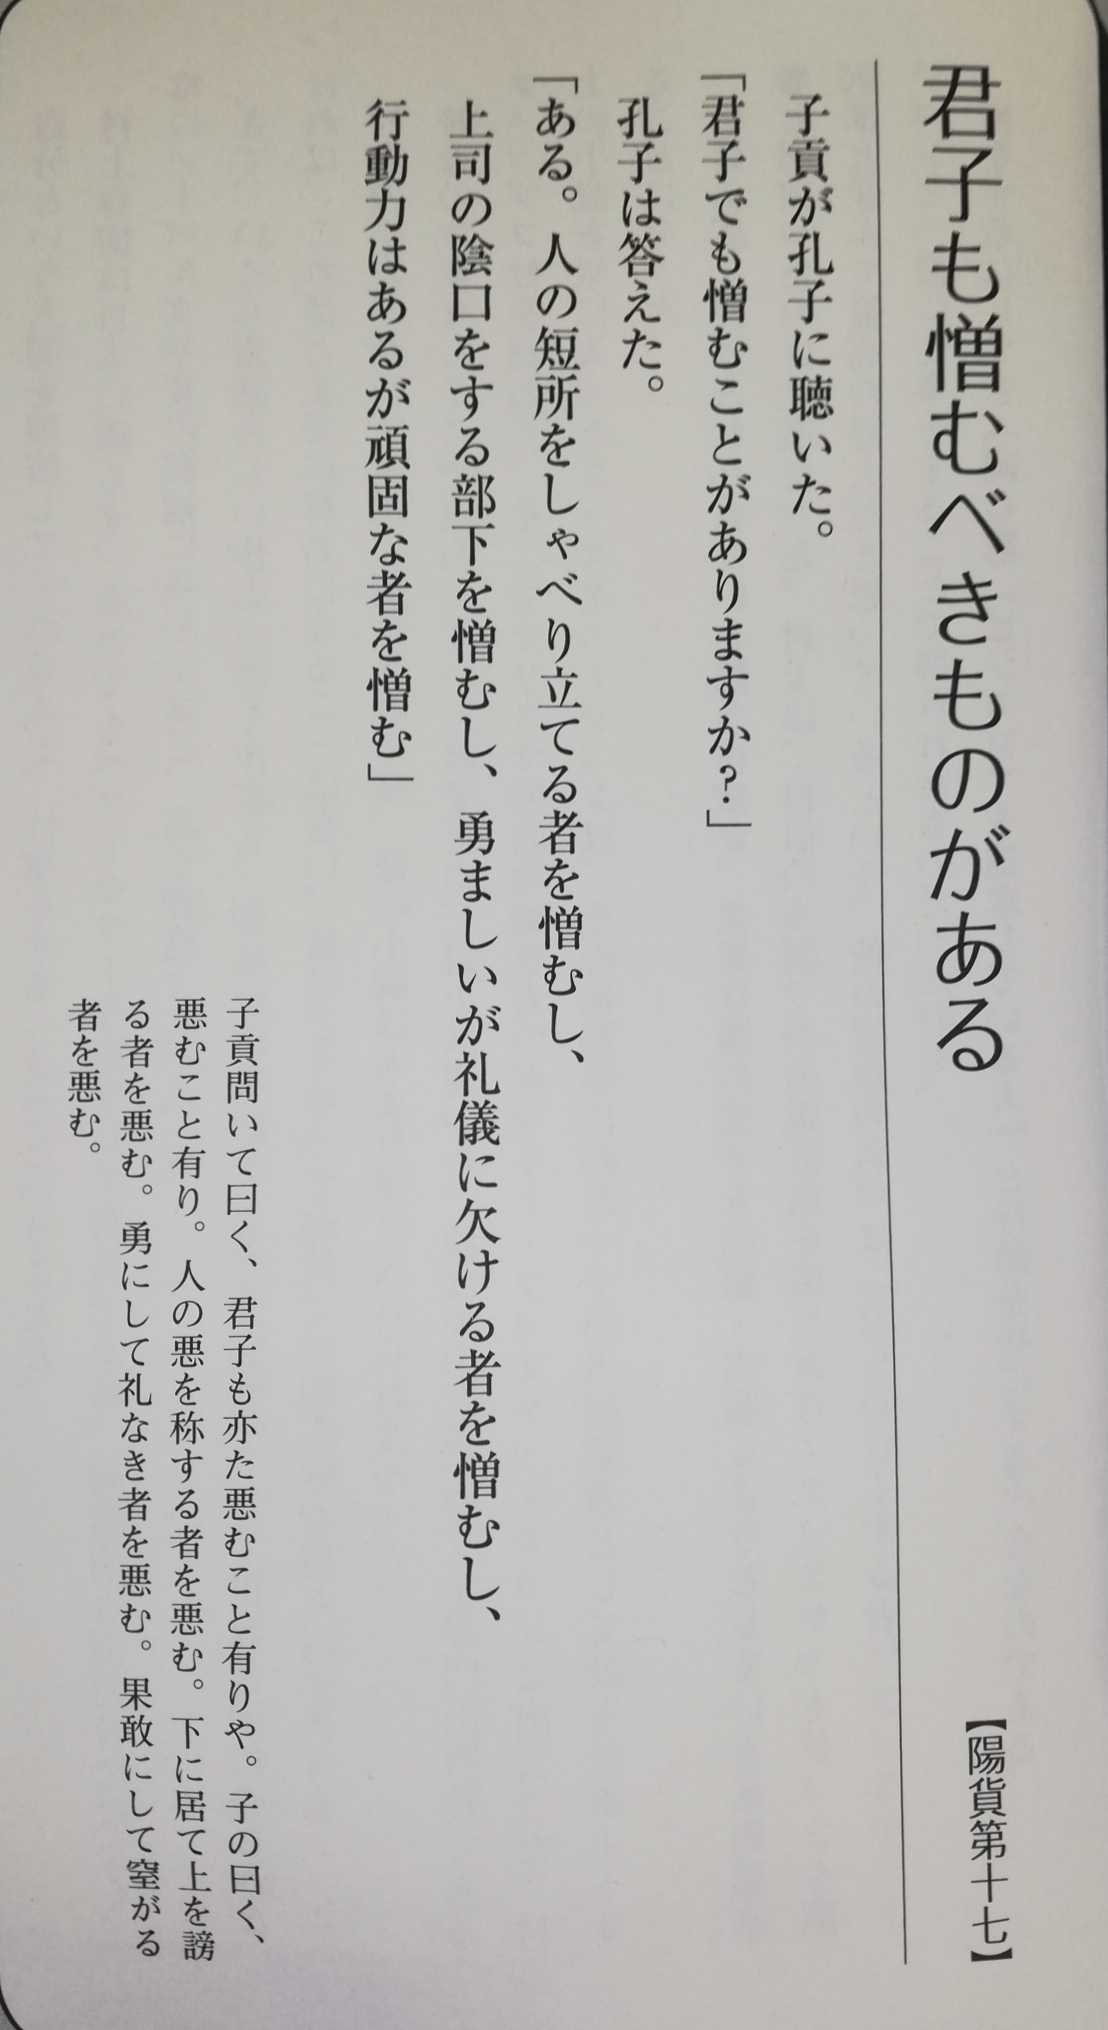 君子も憎むべきものがある
【陽貨第十七】
子貢が孔子に聴いた。
「君子でも憎むことがありますか?」
孔子は答えた。
「ある。人の短所をしゃべり立てる者を憎むし、
上司の陰口をする部下を憎むし、勇ましいが礼儀に欠ける者を憎むし、
行動力はあるが頑固な者を憎む」
子貢問いて曰く、君子も亦た悪むこと有りや。子の曰く、
悪むこと有り。人の悪を称する者を悪む。下に居て上を謗
る者を悪む。勇にして礼なき者を悪む。果敢にして窒がる
者を悪む。